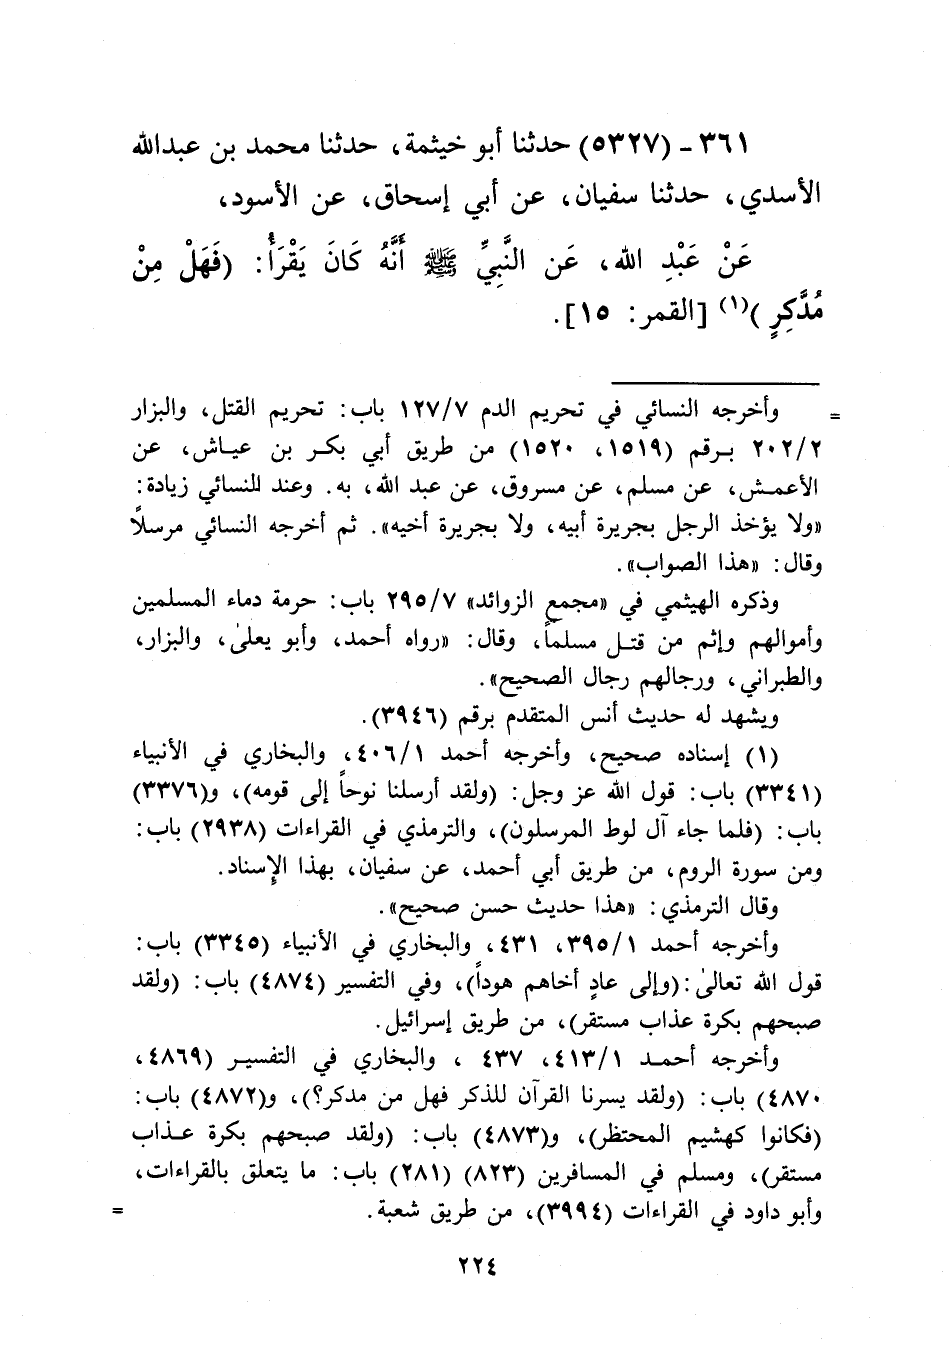 ٣٦١ - (٥٣٢٧) حدثنا أبو خيثمة، حدثنا محمد بن عبدالله
الأسدي، حدثنا سفيان، عن أبي إسحاق، عن الأسود،
عَنْ عَبْدِ الله، عَن النَّبِيِّ ﷺ أَنَّهُ كَانَ يَقْرَأُ: (فَهَلْ مِنْ
مُدَّكِرٍ )(١) [القمر: ١٥].
= وأخرجه النسائي في تحريم الدم ١٢٧/٧ باب: تحريم القتل، والبزار
٢٠٢/٢ برقم (١٥١٩، ١٥٢٠) من طريق أبي بكر بن عياش، عن
الأعمش، عن مسلم، عن مسروق، عن عبد الله، به. وعند للنسائي زيادة:
«ولا يؤخذ الرجل بجريرة أبيه، ولا بجريرة أخيه». ثم أخرجه النسائي مرسلاً
وقال: «هذا الصواب».
وذكره الهيثمي في «مجمع الزوائد» ٢٩٥/٧ باب: حرمة دماء المسلمين
وأموالهم وإثم من قتل مسلماً، وقال: «رواه أحمد، وأبو يعلىٰ، والبزار،
والطبراني، ورجالهم رجال الصحيح».
ويشهد له حديث أنس المتقدم برقم (٣٩٤٦).
(١) إسناده صحيح، وأخرجه أحمد ٤٠٦/١، والبخاري في الأنبياء
(٣٣٤١) باب: قول الله عز وجل: (ولقد أرسلنا نوحاً إلى قومه)، و(٣٣٧٦)
باب: (فلما جاء آل لوط المرسلون)، والترمذي في القراءات (٢٩٣٨) باب:
ومن سورة الروم، من طريق أبي أحمد، عن سفيان، بهذا الإسناد.
وقال الترمذي: «هذا حديث حسن صحيح».
وأخرجه أحمد ٣٩٥/١، ٤٣١، والبخاري في الأنبياء (٣٣٤٥) باب:
قول الله تعالىٰ:(وإلى عادٍ أخاهم هوداً)، وفي التفسير (٤٨٧٤) باب: (ولقد
صبحهم بكرة عذاب مستقر)، من طريق إسرائيل.
وأخرجه أحمد ٤١٣/١، ٤٣٧ ، والبخاري في التفسير (٤٨٦٩،
٤٨٧٠) باب: (ولقد يسرنا القرآن للذكر فهل من مدكر؟)، و(٤٨٧٢) باب:
(فكانوا كهشيم المحتظر)، و(٤٨٧٣) باب: (ولقد صبحهم بكرة عذاب
مستقر)، ومسلم في المسافرين (٨٢٣) (٢٨١) باب: ما يتعلق بالقراءات،
وأبو داود في القراءات (٣٩٩٤)، من طريق شعبة. =
٢٢٤